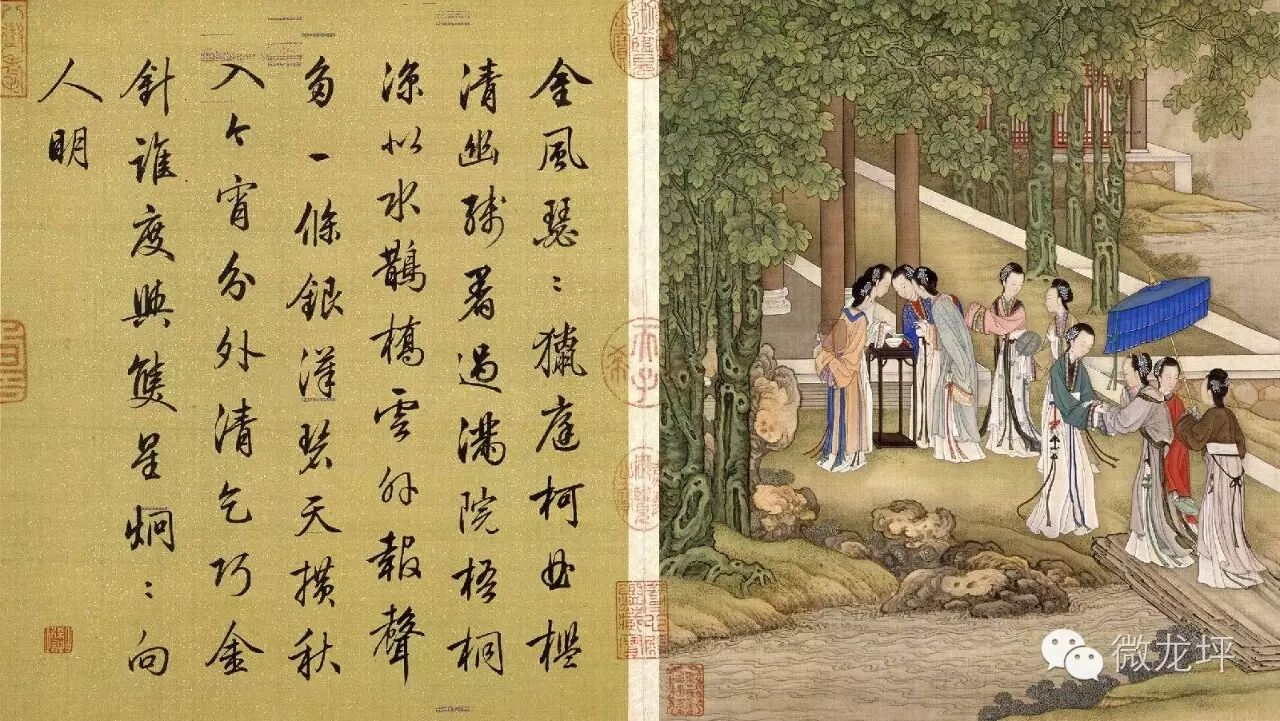 金風瑟〻獵庭柯曲檻
清幽殘暑過滿院梧桐
涼似水鵲橋雲外報聲
多一條銀漢碧天横秋
入今宵分外清乞巧金
針誰度與雙星炯〻向
人明
微龙坪